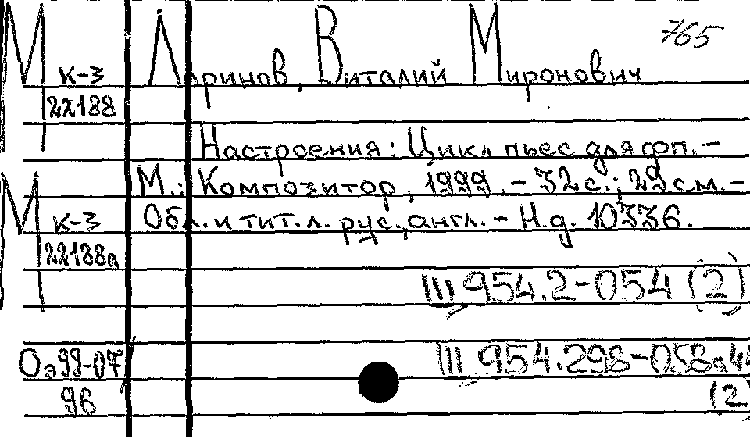 765
М к-3 Ларинов, Виталий Миронович
22188
Настроения: Цикл пьес для фп. –
М.: Композитор, 1999. – 32 с.; 29 см. –
М к-3 Обл. и тит. л. рус., англ. – Н.д. 10336.
22188а
Ш 954.2-054 (2)
Оэ99-07 Ш 954.298-058я4
96 (2)